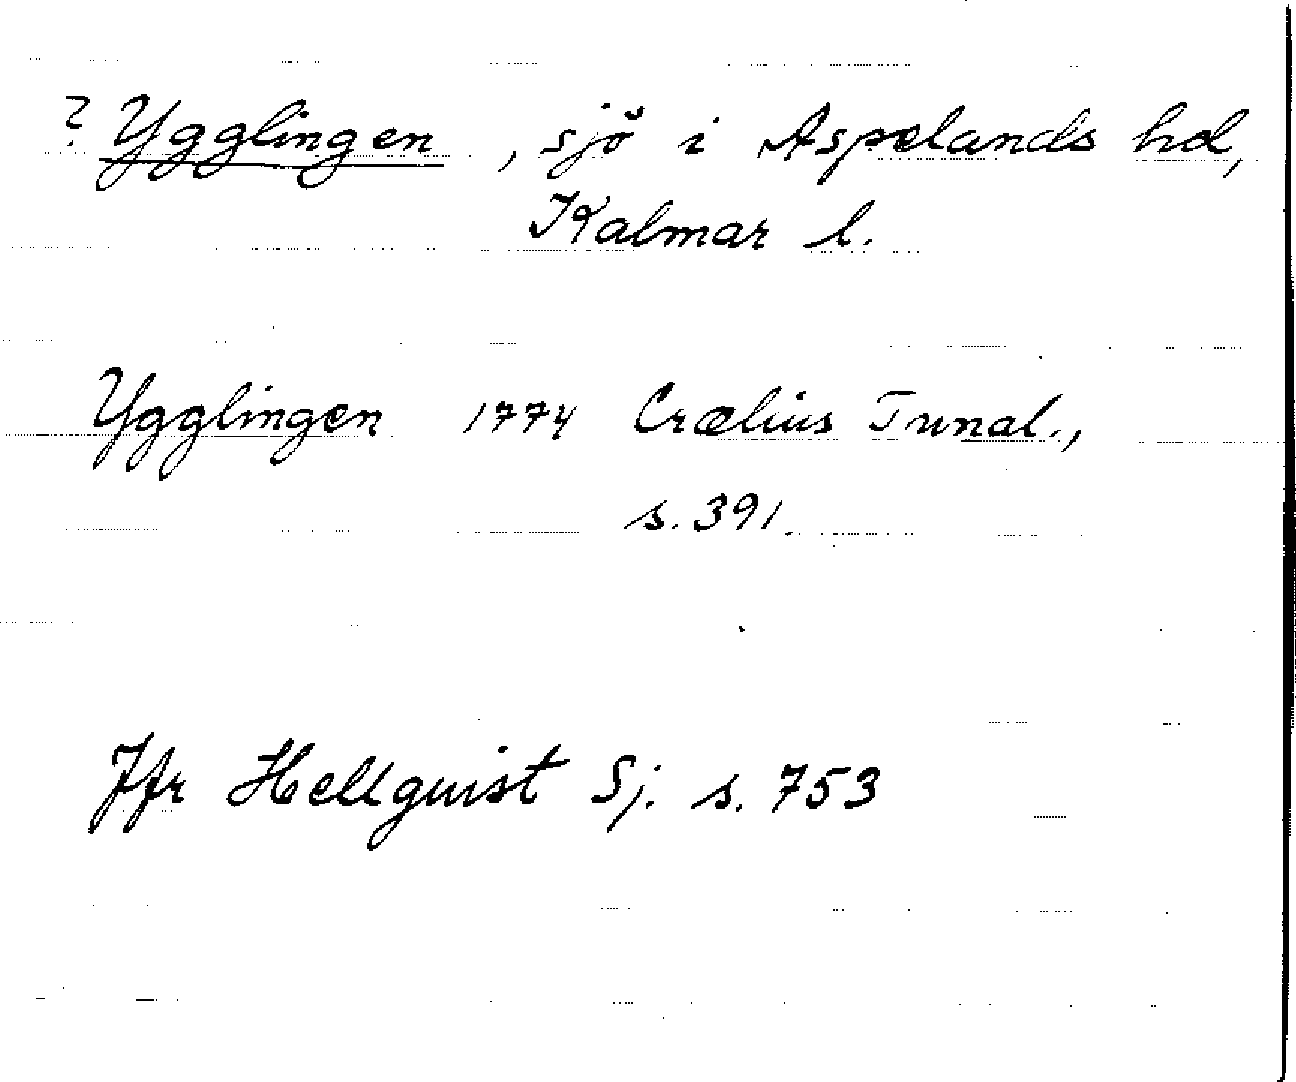 ? Ygglingen, sjö i Aspelands hd,
Kalmar l.
Ygglingen 1774 Crælius Tunal.,
s. 391.
Jfr Hellquist Sj. s. 753